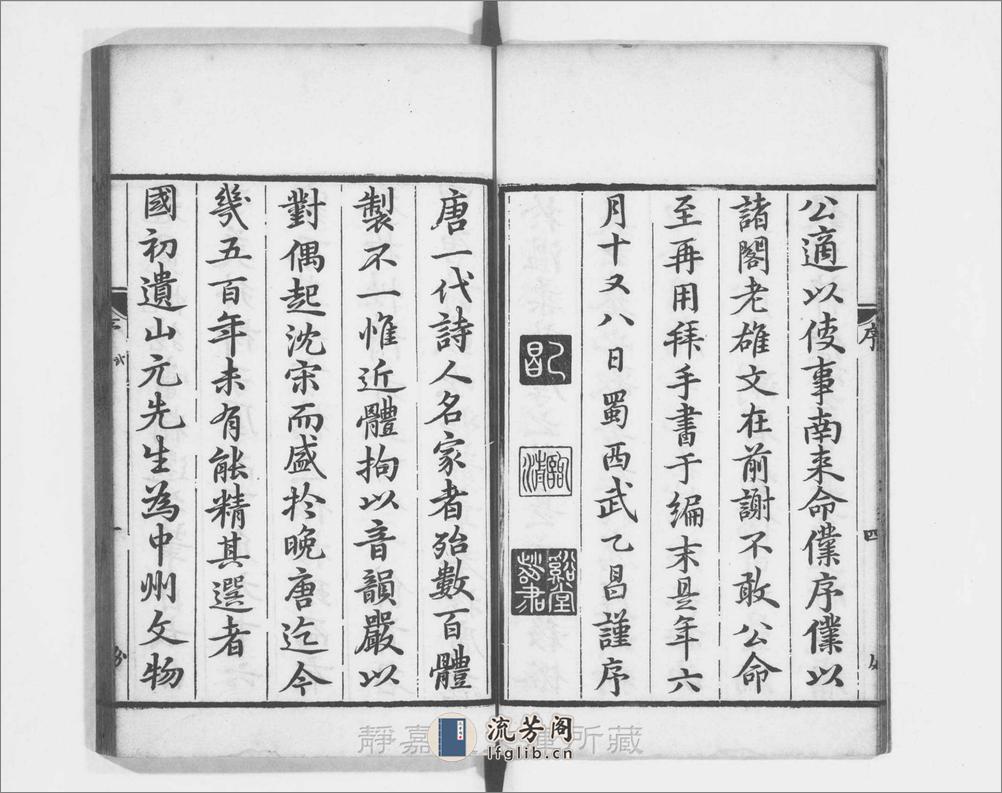 公適以使事南来命僕序僕以
諸閣老雄文在前謝不敢公命
至再用拜手書于編末是年六
月十又八日蜀西武乙昌謹序
乙昌
谿堂
唐一代詩人名家者殆數百體
製不一惟近體拘以音韻嚴以
對偶起沈宋而盛扵晚唐迄今
幾五百年未有能精其選者
國初遺山元先生為中州文物
序
四
靜嘉堂文庫所藏
流芳阁
lfglib.cn